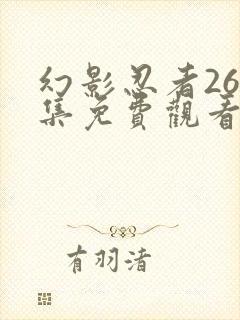 幻影忍者26
集免費觀看
有羽清